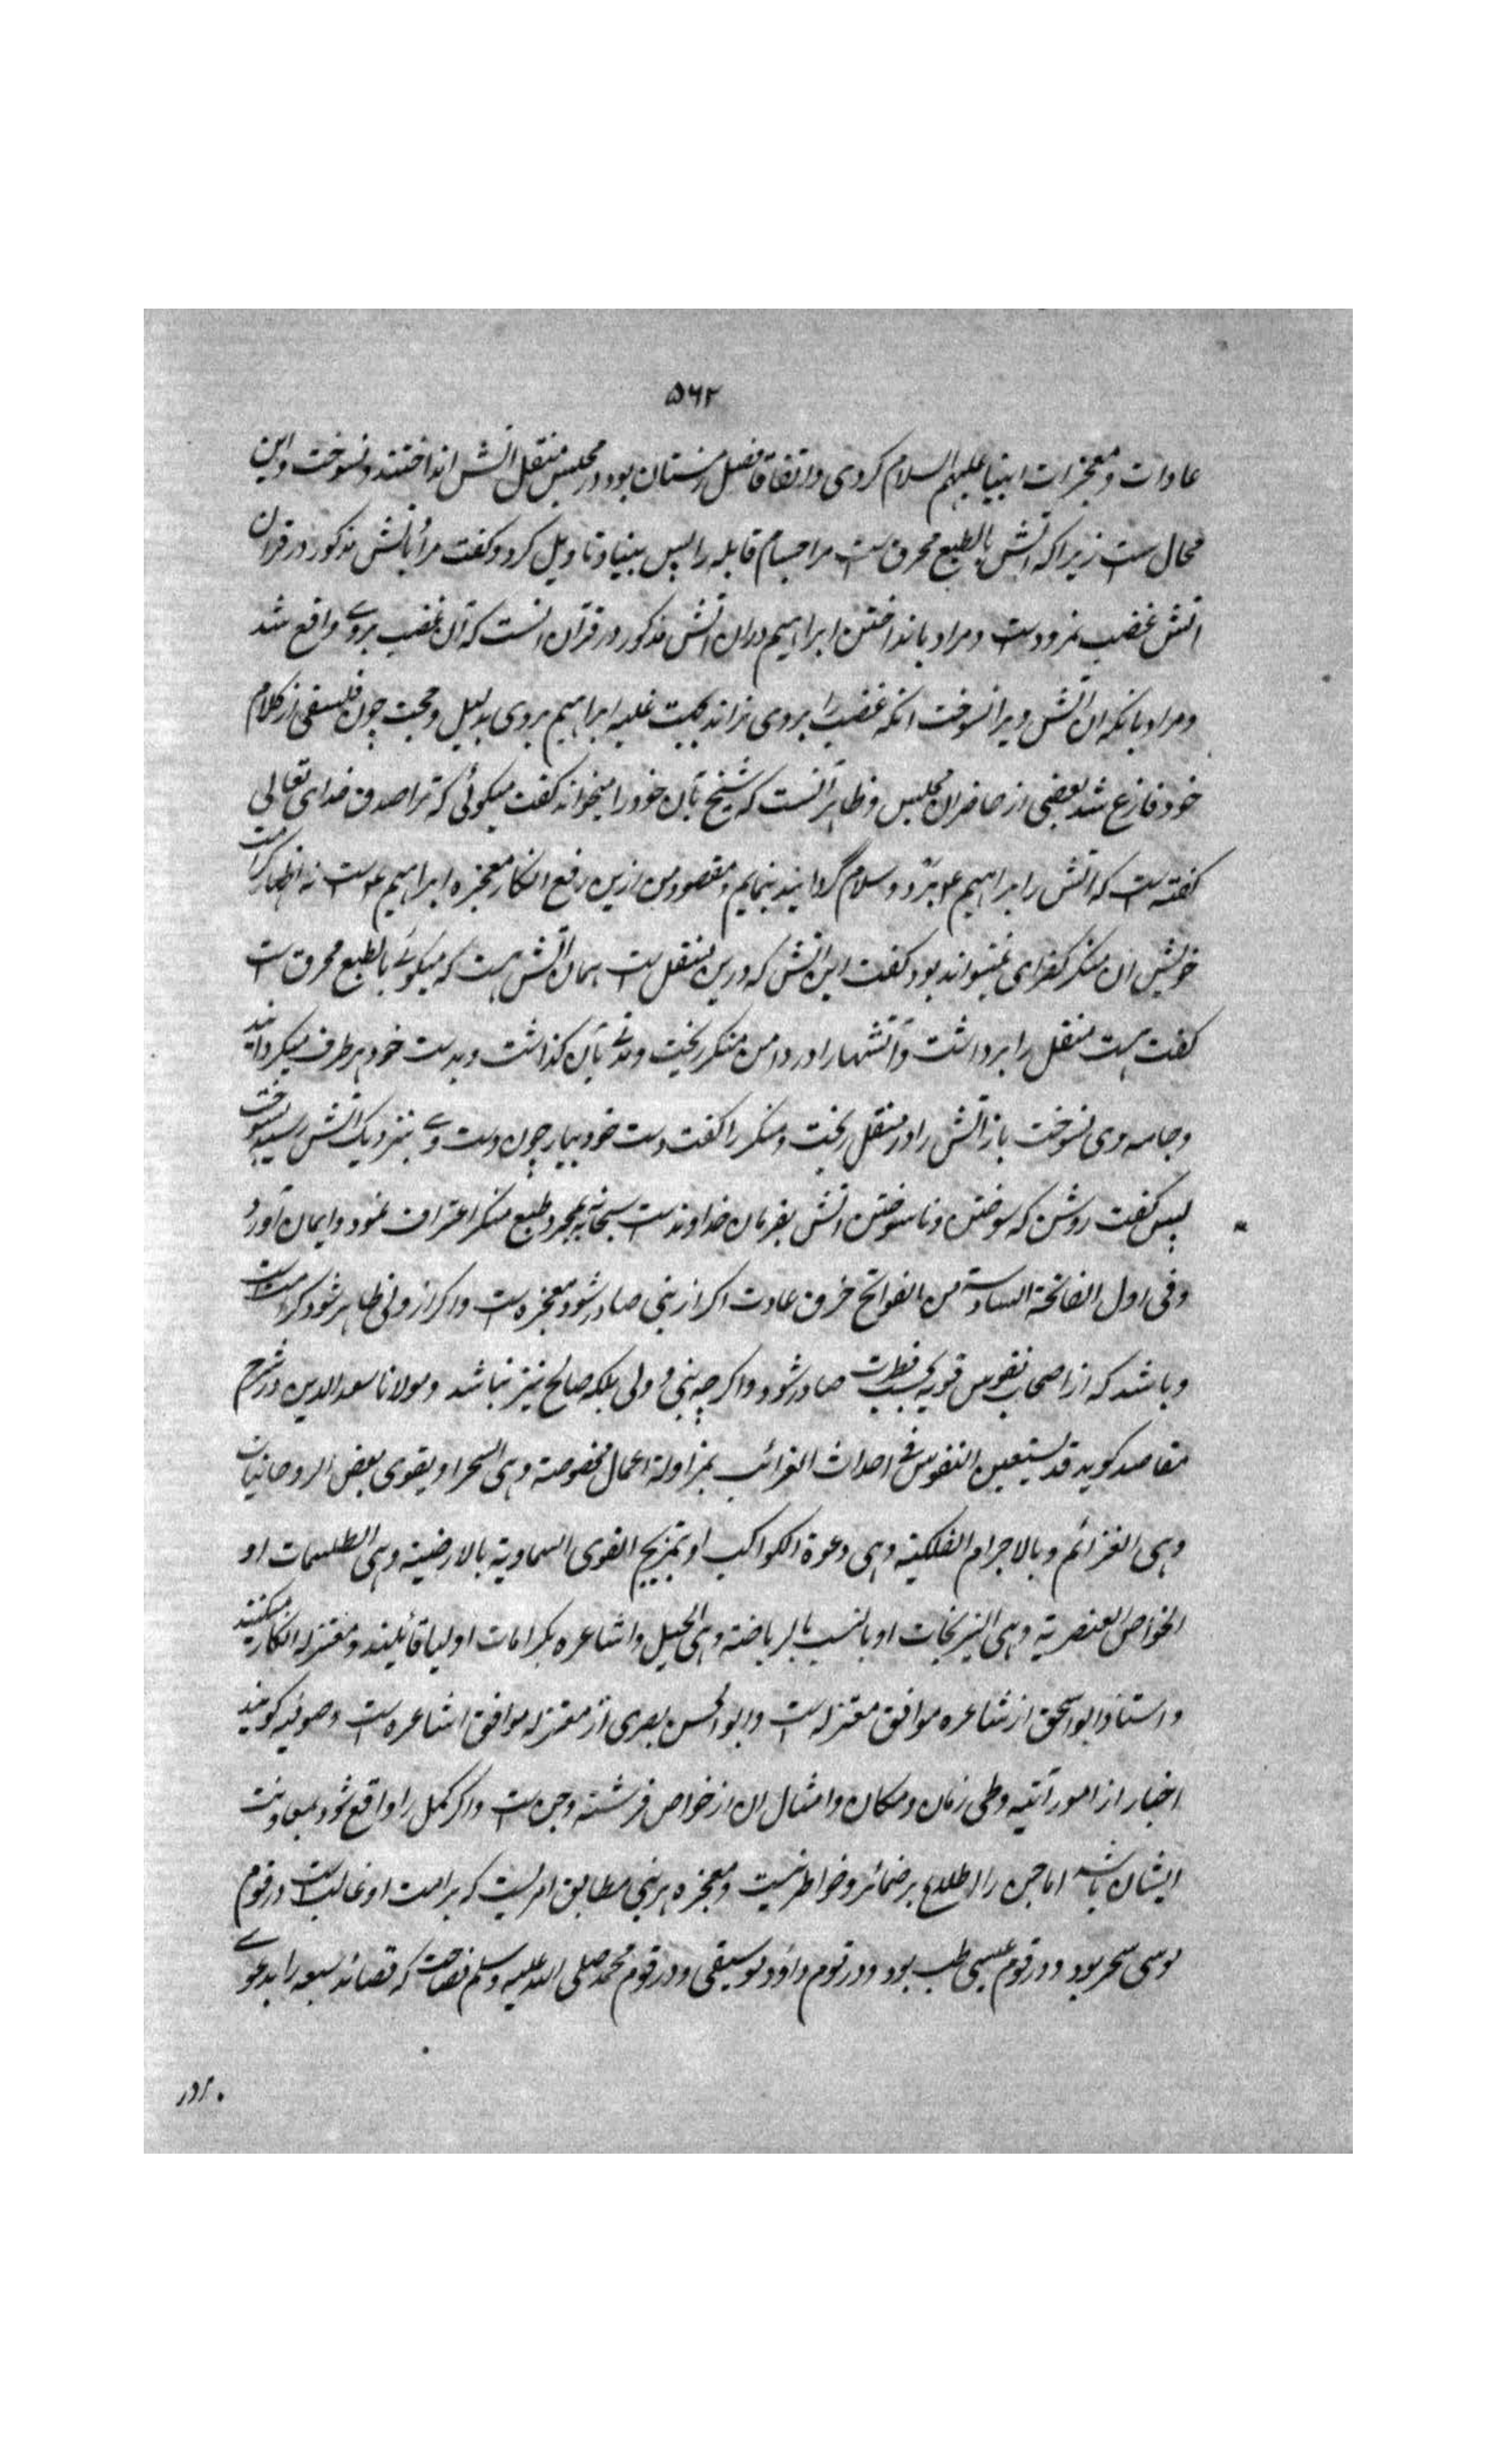 ۵۶۲
عادات و معجزات انبیا علیهم السلام کردی و اتفاقا فصل زمستان بود و در مجلس منقل آتش انداختند و نسوخت و این
محال ست زیرا که آتش بالطبع محرق ست مر اجسام قابله را پس بنیاد تاویل کرد و گفت مراد بآتش مذکور در قرآن
آتش غضب نمرودست و مراد بانداختن ابراهیم دران آتش مذکور در قرآن آنست که آن غضب بروے واقع شد
و مراد بآنکه ان آتش ویرا نسوخت انکه غضب را بروی نراند بجهت غلبه ابراهیم بروی بدلیل و حجت چون فلسفی از کلام
خود فارغ شد بعضی از حاضران مجلس و ظاهر آنست که شیخ بآن خود را میخواند گفت میگوئی که ترا صدق خدای تعالی
گفته ست که آتش را بر ابراهیم ع برد و سلام گردانید بنمایم و مقصود من ازین رفع انکار معجزه ابراهیم ع ست نه اظهار کرامت
خویش ان منکر گفت این آتش که درین منقل ست همان آتش هست که میگوئے بالطبع محرق ست
گفت هست منقل را برداشت و آتشها را در دامن منکر ریخت و مدتے بآن گذاشت و بدست خود هر طرف میگردانید
و جامه وی نسوخت باز آتش را در منقل ریخت و منکر را گفت دست خود بیار چون دست وے بنزدیک آتش رسید بسوخت
پس گفت روشن که سوختن و ناسوختن آتش بفرمان خداوندست سبحانه نه بمجرد طبع منکر اعتراف نمود و ایمان آورد
و فی اول الفاتحة السادسة من الفواتح خرق عادت اگر از نبی صادر شود معجزه ست و اگر از ولی ظاهر شود کرامت ست
و باشد که از اصحاب نفوس قویه بحسب فطرت صادر شود و اگرچه نبی و ولی بلکه صالح نیز نباشد و مولانا سعد الدین در شرح
مقاصد گوید قد یستعین النفوس فی احداث الغرائب بمزاولة اعمال مخصوصة وهی السحر او یقوی بعض الروحانیات
وهی العزائم و بالاجرام الفلکیة وهی دعوة الکواکب او بتمزیج القوی السماویة بالارضیة وهی الطلسمات او
الخواص العنصریة وهی النیرنجات او بالنسب بالریاضة وهی الحیل و اشاعره بکرامات اولیا قائلند و معتزله انکار میکنند
و استاد ابو اسحق از اشاعره موافق معتزله ست و ابو الحسن بصری از معتزله موافق اشاعره ست و صوفیه گویند
اخبار از امور آتیه و طی زمان و مکان و امثال ان از خواص فرشته و جن ست و اگر کمل را واقع شود بمعاونت
ایشان باشد اما جن را اطلاع بر ضمائر و خواطر نیست و معجزه هر نبی مطابق امریست که بر امت او غالب ست در قوم
موسی سحر بود و در قوم عیسی طب بود و در قوم داؤد موسیقی و در قوم محمد صلی الله علیه وسلم فصاحت که قصائد سبعه را بدعوے